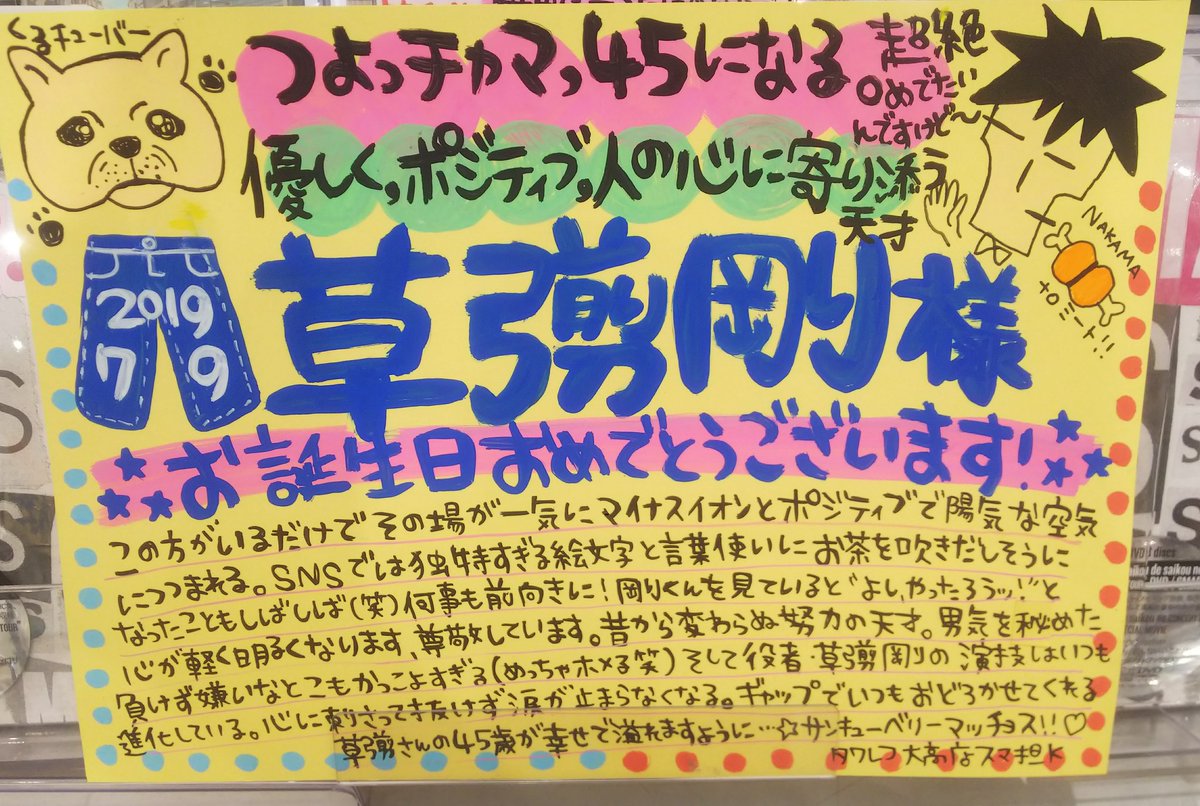 くるチューバー
つよっチャマっ45になる
超絶
おめでたい
んですけど〜
優しく。ポジティブ。人の心に寄り添う
天才
NAKAMA
to ミート!!
2019
7 9
草彅剛様
お誕生日おめでとうございます!
この方がいるだけでその場が一気にマイナスイオンとポジティブで陽気な空気
につつまれる。SNSでは独特すぎる絵文字と言葉使いにお茶を吹きだしそうに
なったこともしばしば(笑)何事も前向きに!剛くんを見ていると"よし、やったろうッ!"と
心が軽く明るくなります、尊敬しています。昔から変わらぬ努力の天才。男気を秘めた
負けず嫌いなとこもかっこよすぎる(めっちゃホメる笑)そして役者・草彅剛の演技はいつも
進化している。心に刺さってき抜けず涙が止まらなくなる。ギャップでいつもおどろかせてくれる
草彅さんの45歳が幸せで溢れますように…☆サンキューベリーマッチョス!!♡
タワレコ大高店スマ担K